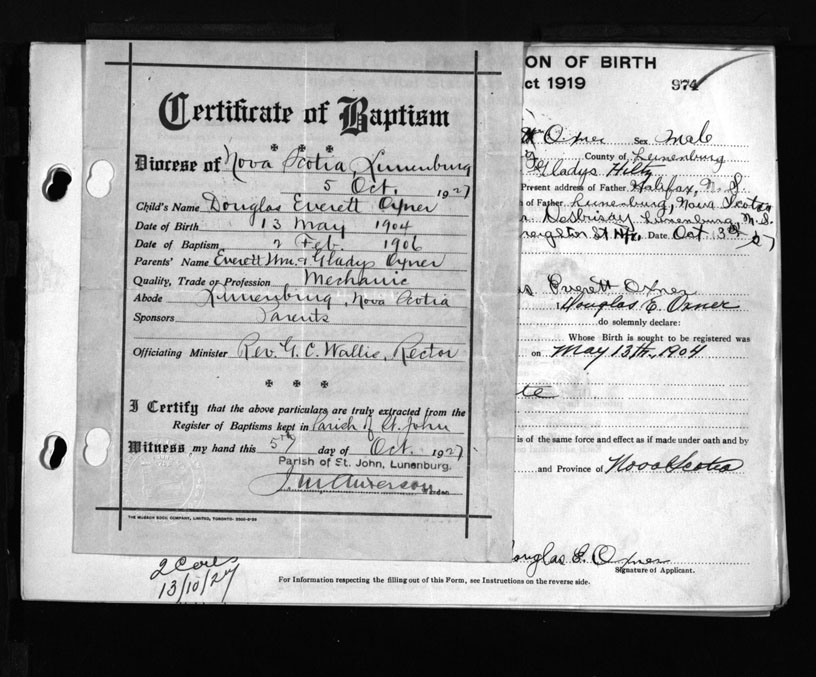 Certificate of Baptism
Diocese of Nova Scotia, Lunenburg
5 Oct. 1927
Child's Name Douglas Everett Oxner
Date of Birth 13 May 1904
Date of Baptism 2 Feb. 1906
Parents' Name Everett Wm. & Gladys Oxner
Quality, Trade or Profession Mechanic
Abode Lunenburg Nova Scotia
Sponsors Parents
Officiating Minister Rev. G. C. Wallis, Rector
I Certify that the above particulars are truly extracted from the
Register of Baptisms kept in Parish of St. John
Witness my hand this 5th day of Oct. 1927
Parish of St. John, Lunenburg.
Warden
THE MUSSON BOOK COMPANY, LIMITED, TORONTO
ON OF BIRTH
ct 1919 974
Oxner Sex Male
County of Lunenburg
Gladys Hiltz
Present address of Father Halifax, N.S.
of Father Lunenburg, Nova Scotia
Desbrisay Lunenburg, N.S.
reighton St Hfx. Date Oct 3rd 27
as Everett Oxner
I Douglas E. Oxner
do solemnly declare:
Whose Birth is sought to be registered was
on May 13th, 1904
te
is of the same force and effect as if made under oath and by
and Province of Nova Scotia
ouglas E. Oxner
Signature of Applicant.
2 Certs
13/10/27
For Information respecting the filling out of this Form, see Instructions on the reverse side.